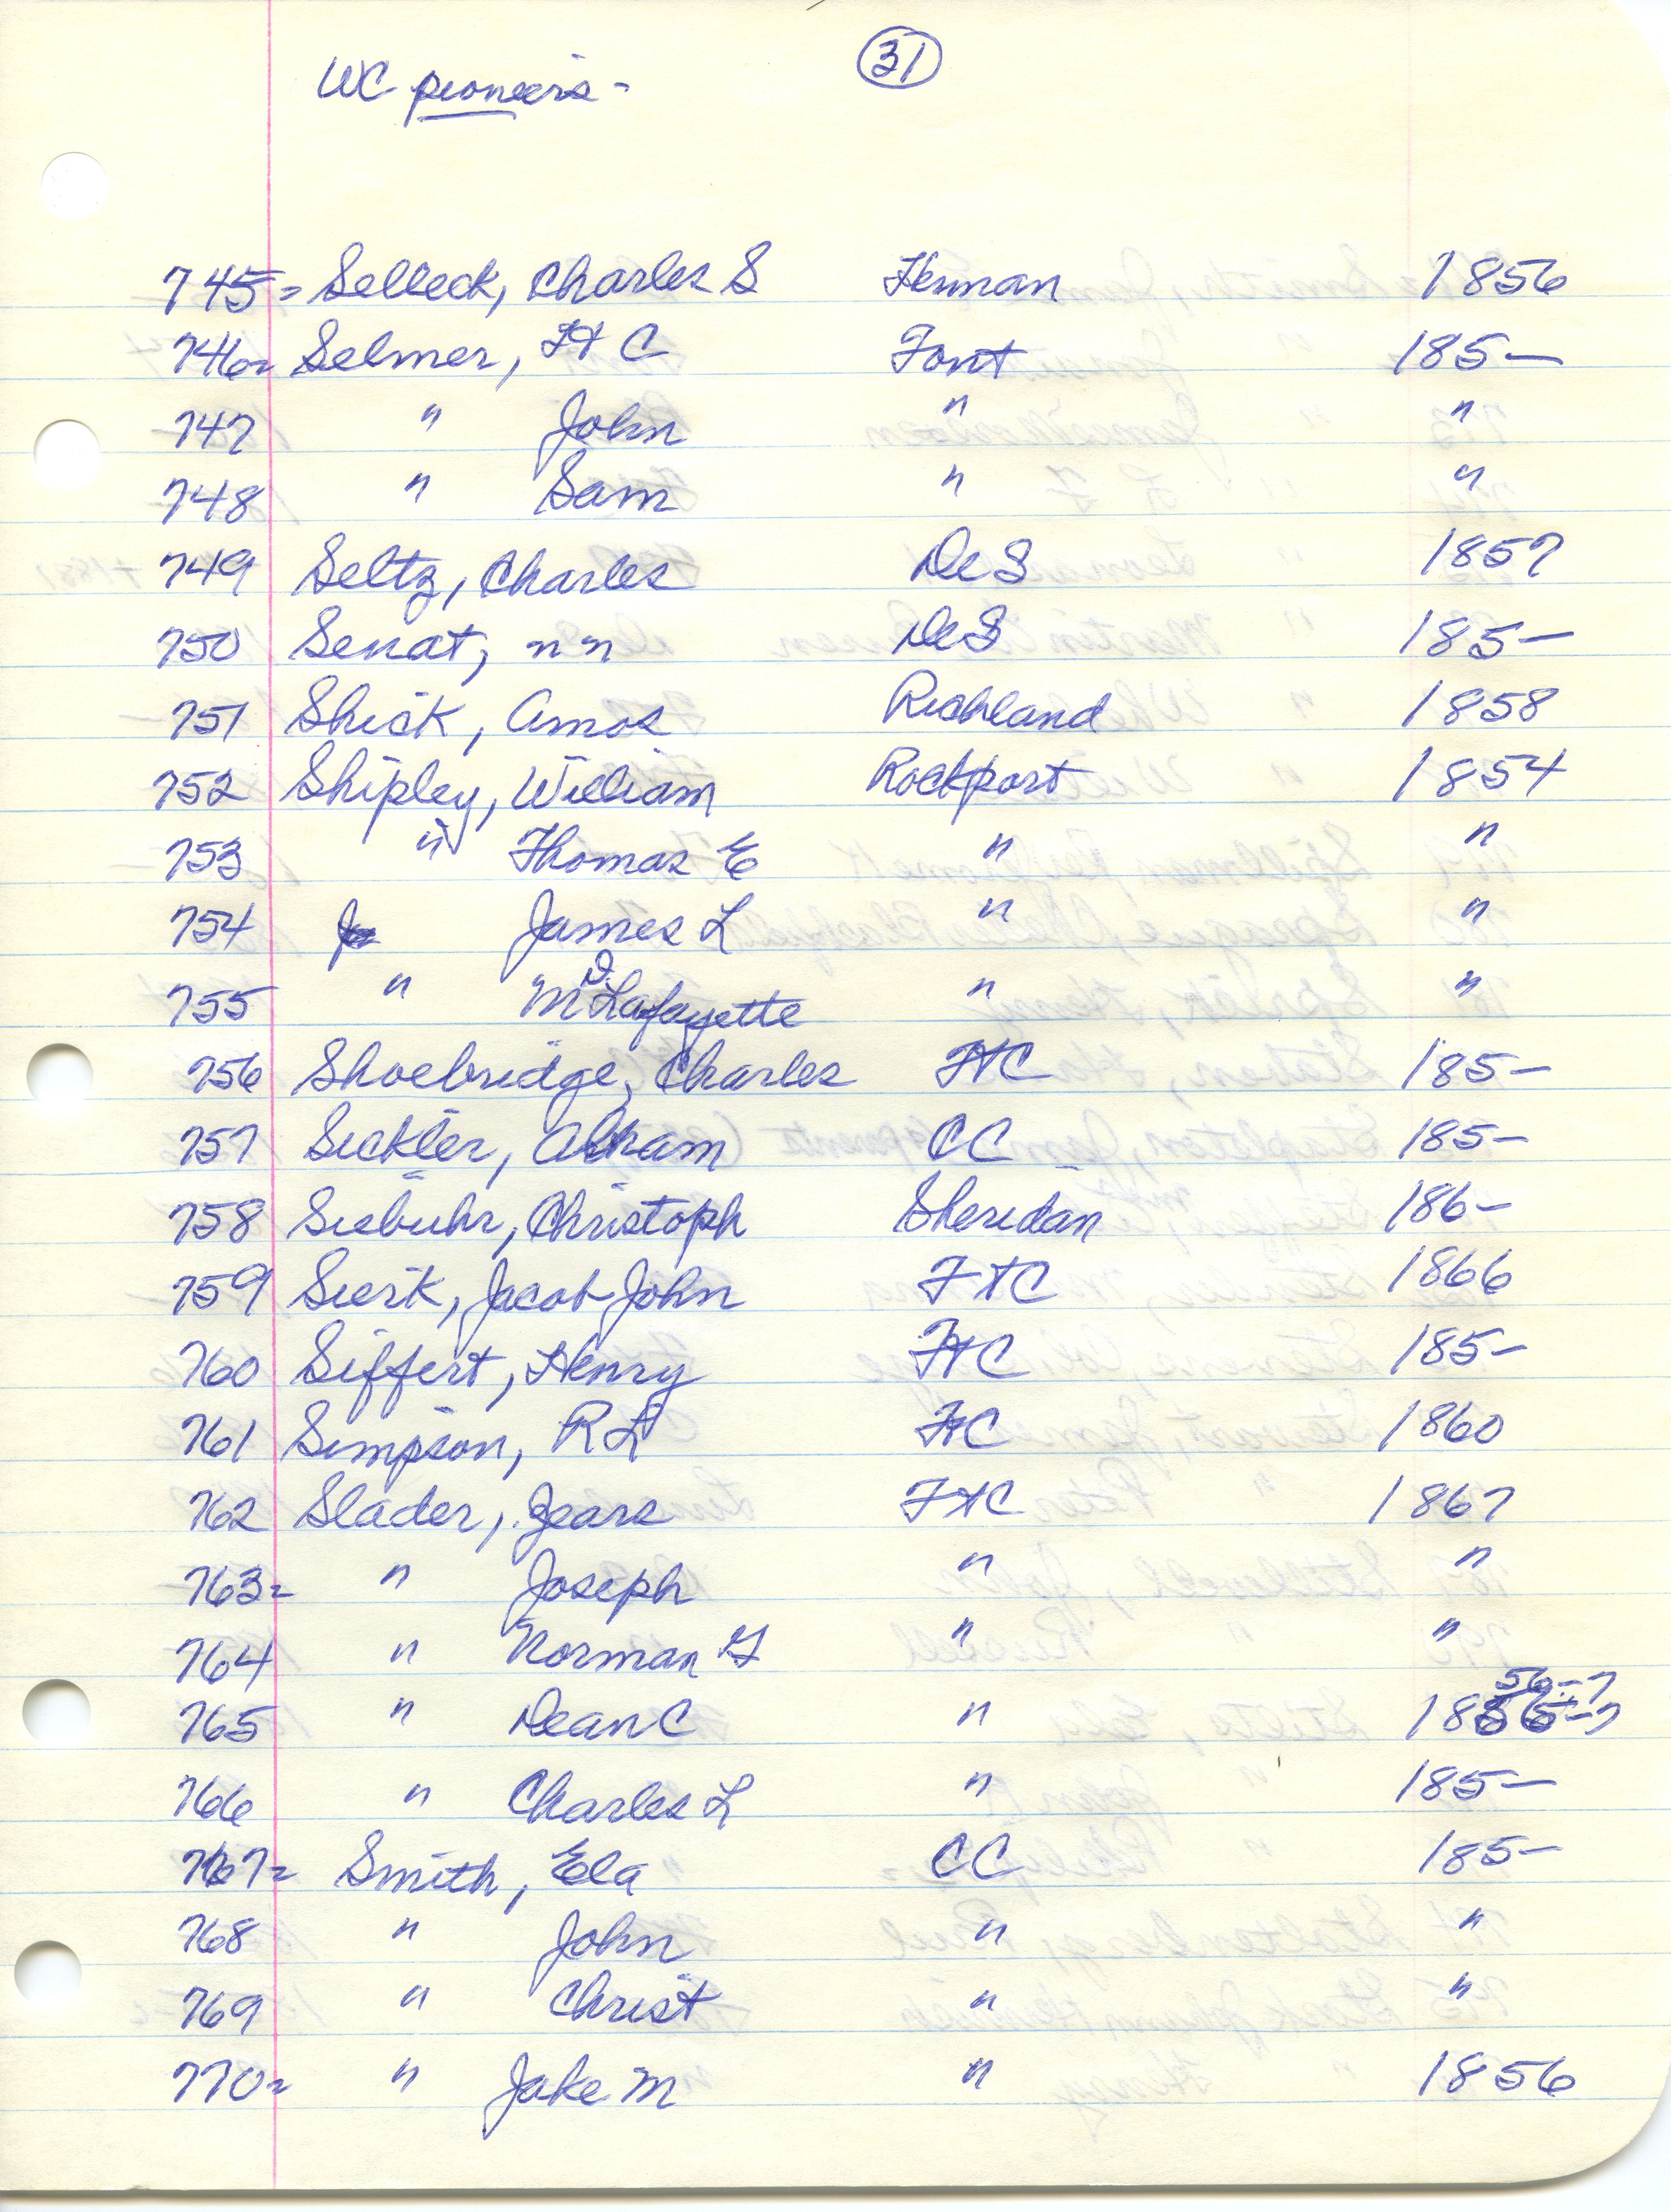 WC pioneers -
31
745= Selleck, Charles S Herman 1856
746= Selmer, H C Font 185—
747 " John " "
748 " Sam " "
749 Seltz, Charles DeS 1857
750 Senat, nn DeS 185—
751 Shick, Amos Richland 1858
752 Shipley, William Rockport 1854
753 " Thomas E " "
754 James L " "
755 " M D. Lafayette " "
756 Shoebridge, Charles FtC 185—
757 Sickler, Abram CC 185-
758 Siebuhr, Christoph Sheridan 186-
759 Sierk, Jacob John FtC 1866
760 Siffert, Henry FtC 185-
761 Simpson, R L FtC 1860
762 Slader, Zears FtC 1867
763= " Joseph " "
764 " Norman G " "
765 " Dean C " 1856-7
766 " Charles L " 185—
767= Smith, Ela CC 185-
768 " John " "
769 " Christ " "
770= " Jake M " 1856